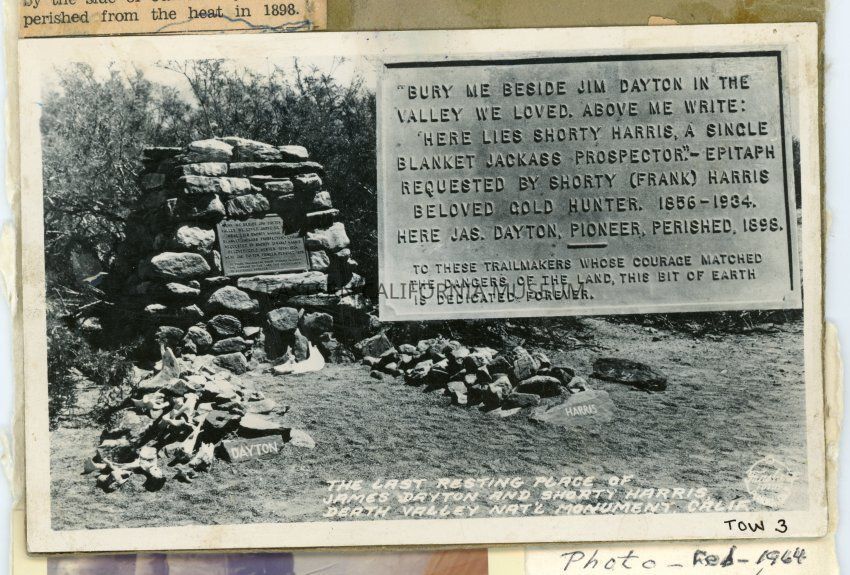 by the side of
perished from the heat in 1898.
"BURY ME BESIDE JIM DAYTON IN THE
VALLEY WE LOVED. ABOVE ME WRITE:
'HERE LIES SHORTY HARRIS, A SINGLE
BLANKET JACKASS PROSPECTOR."-EPITAPH
REQUESTED BY SHORTY (FRANK) HARRIS
BELOVED GOLD HUNTER. 1856-1934.
HERE JAS. DAYTON, PIONEER, PERISHED, 1898.
TO THESE TRAILMAKERS WHOSE COURAGE MATCHED
THE DANGERS OF THE LAND, THIS BIT OF EARTH
IS DEDICATED FOREVER.
CALIFORNIA MUSEUM
HARRIS
DAYTON
THE LAST RESTING PLACE OF
JAMES DAYTON AND SHORTY HARRIS,
DEATH VALLEY NAT'L MONUMENT, CALIF
TOW 3
Photo - Feb - 1964